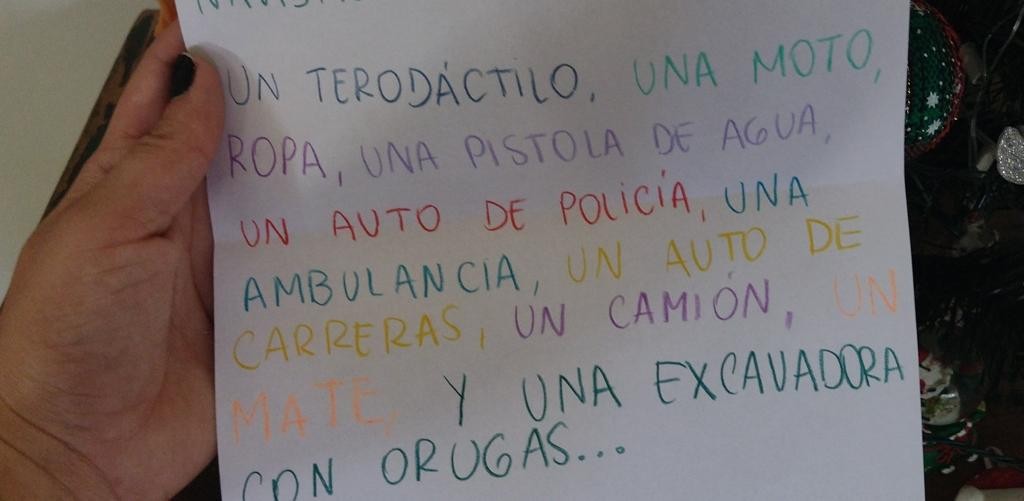 UN TERODÁCTILO, UNA MOTO,
ROPA, UNA PISTOLA DE AGUA,
UN AUTO DE POLICÍA, UNA
AMBULANCIA, UN AUTO DE
CARRERAS, UN CAMIÓN, UN
MATE, Y UNA EXCAVADORA
CON ORUGAS...